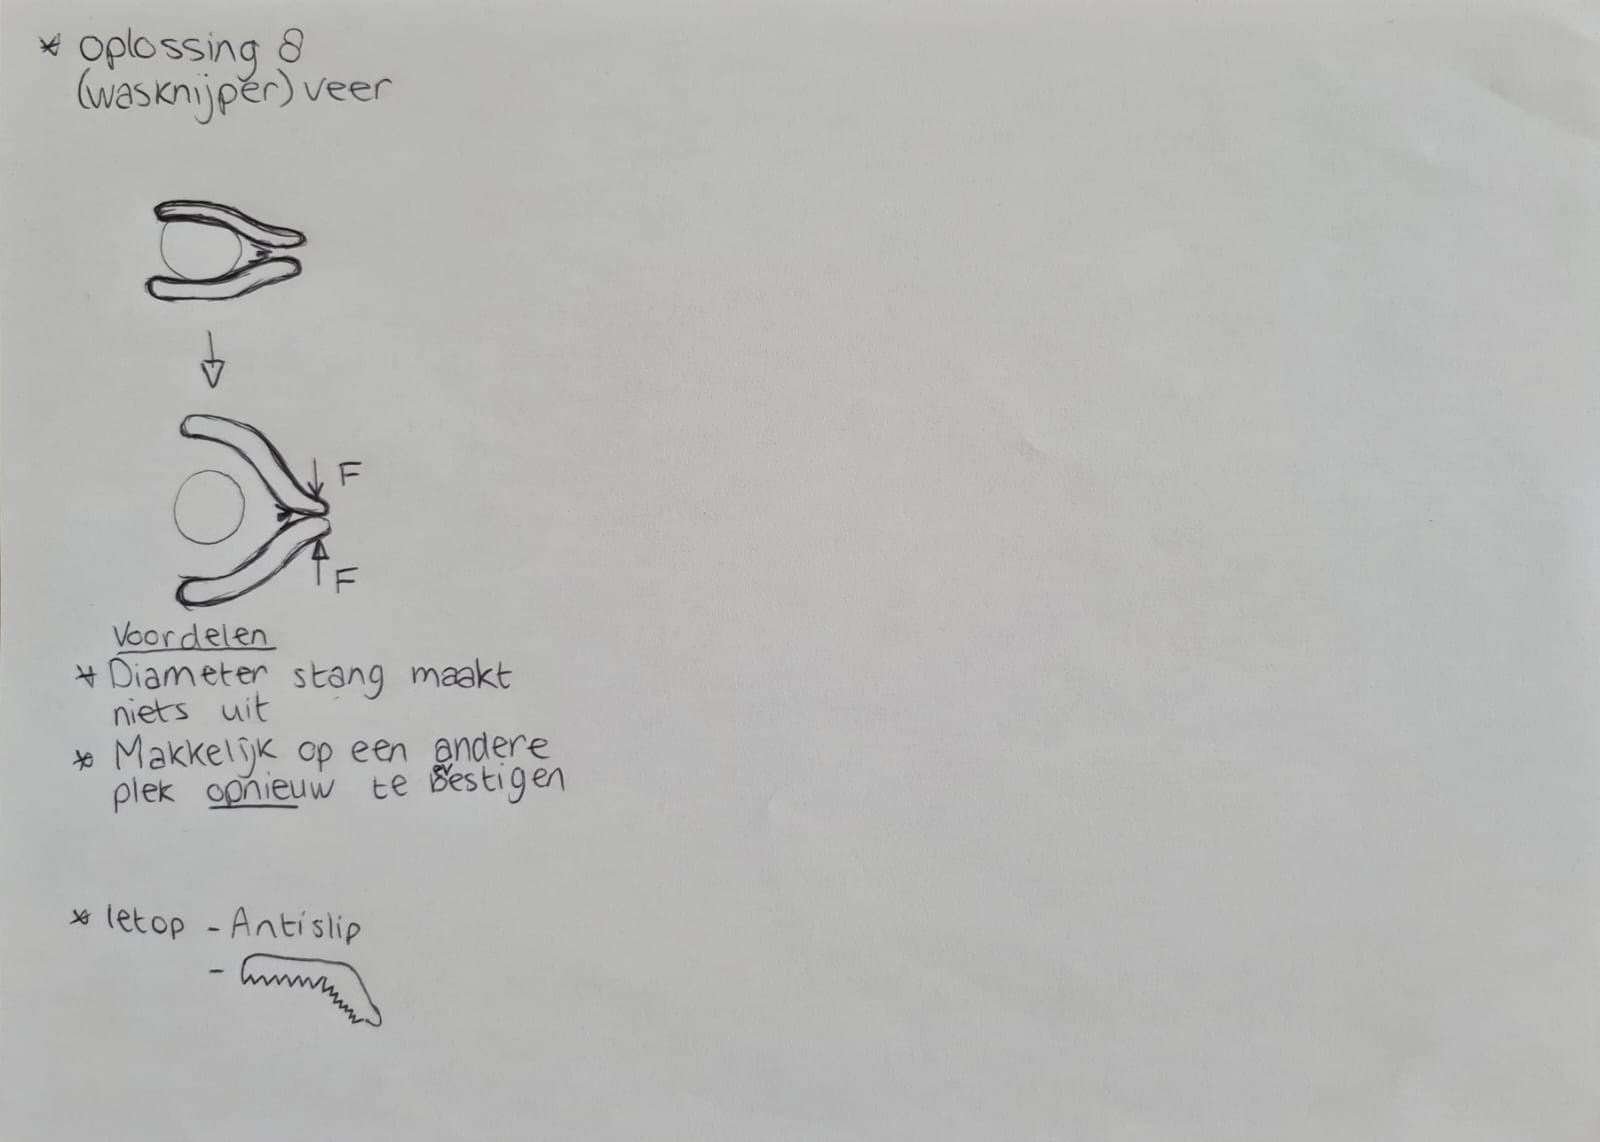 * oplossing 8
(wasknijper) veer
F
F
Voordelen
* Diameter stang maakt
niets uit
* Makkelijk op een andere
plek opnieuw te bevestigen
* letop - Antislip
-